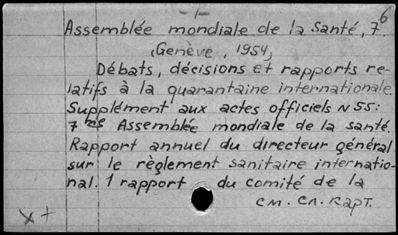 -1-
6
Assemblée mondiale de la Santé, 7.
(Genève, 1954)
Débats, décisions et rapports re-
latifs à la quarantaine internationale
Supplément aux actes officiels N 55:
7me Assemblée mondiale de la santé.
Rapport annuel du directeur général
sur le règlement sanitaire internatio-
nal. 1 rapport du comité de la
см. сл. карт.
x +